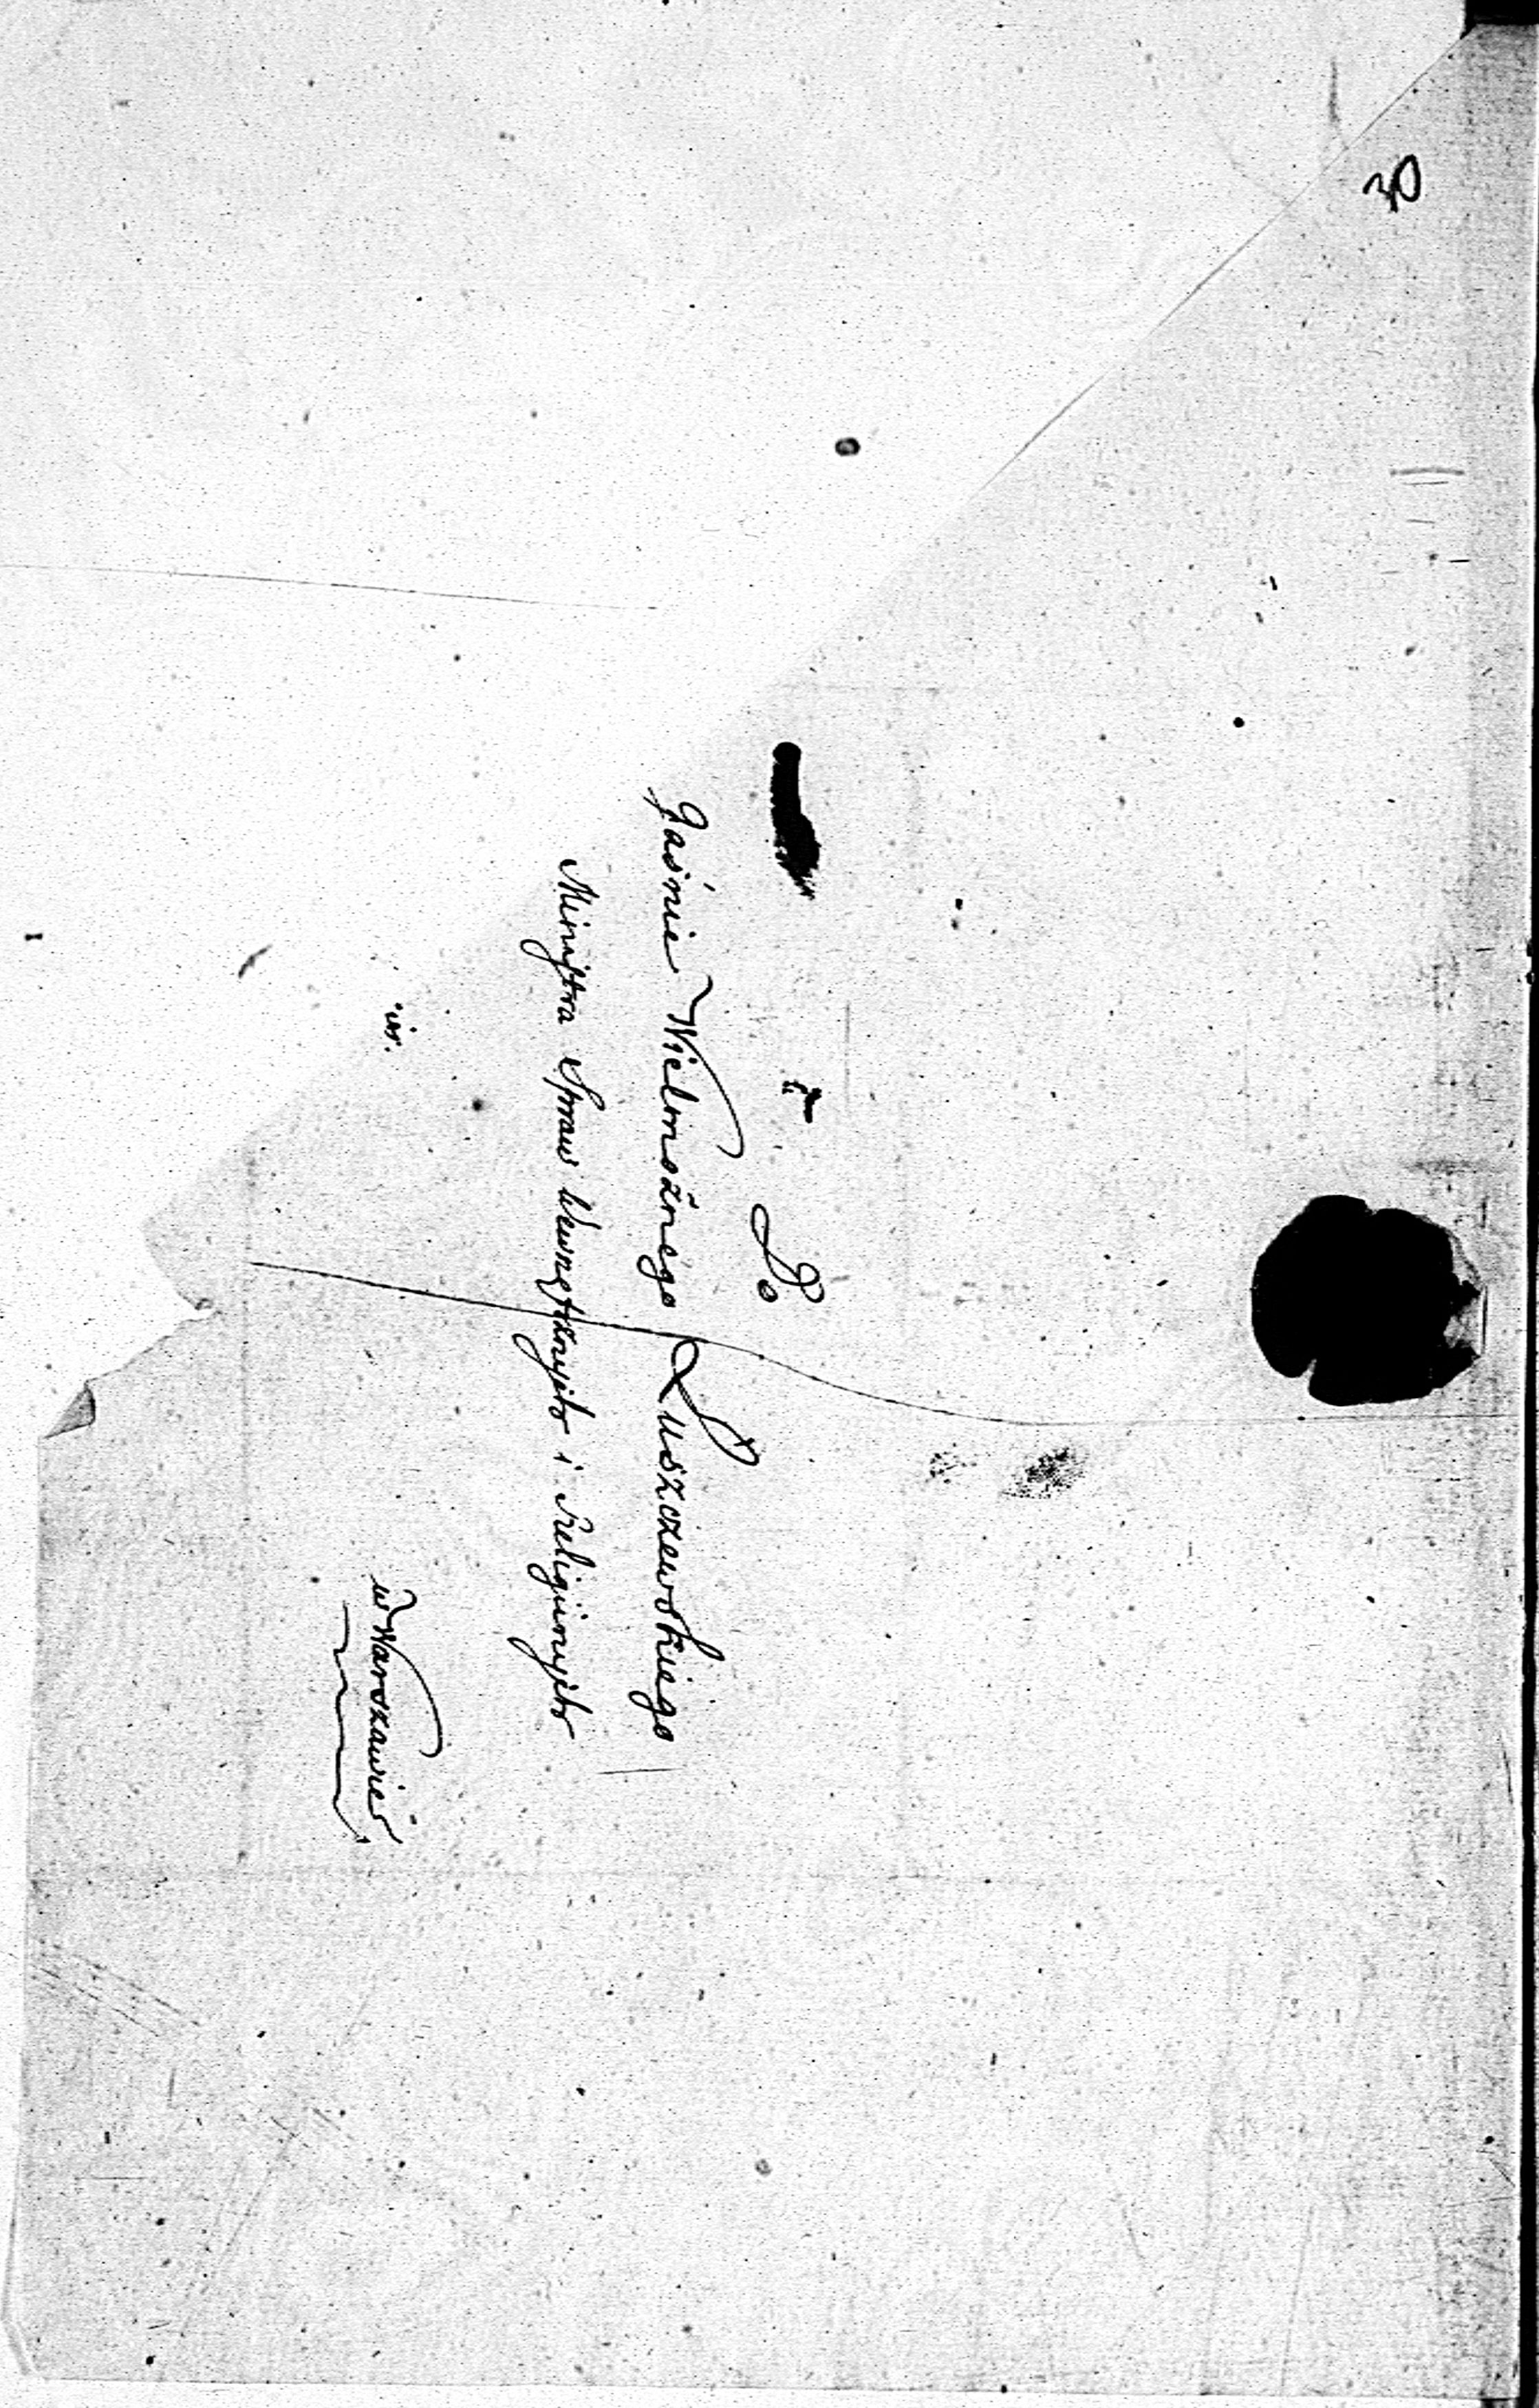 30
Do
Jaśnie Wielmożnego Łuszczewskiego
Ministra Spraw Wewnętrznych i Religiinych
w Warszawie